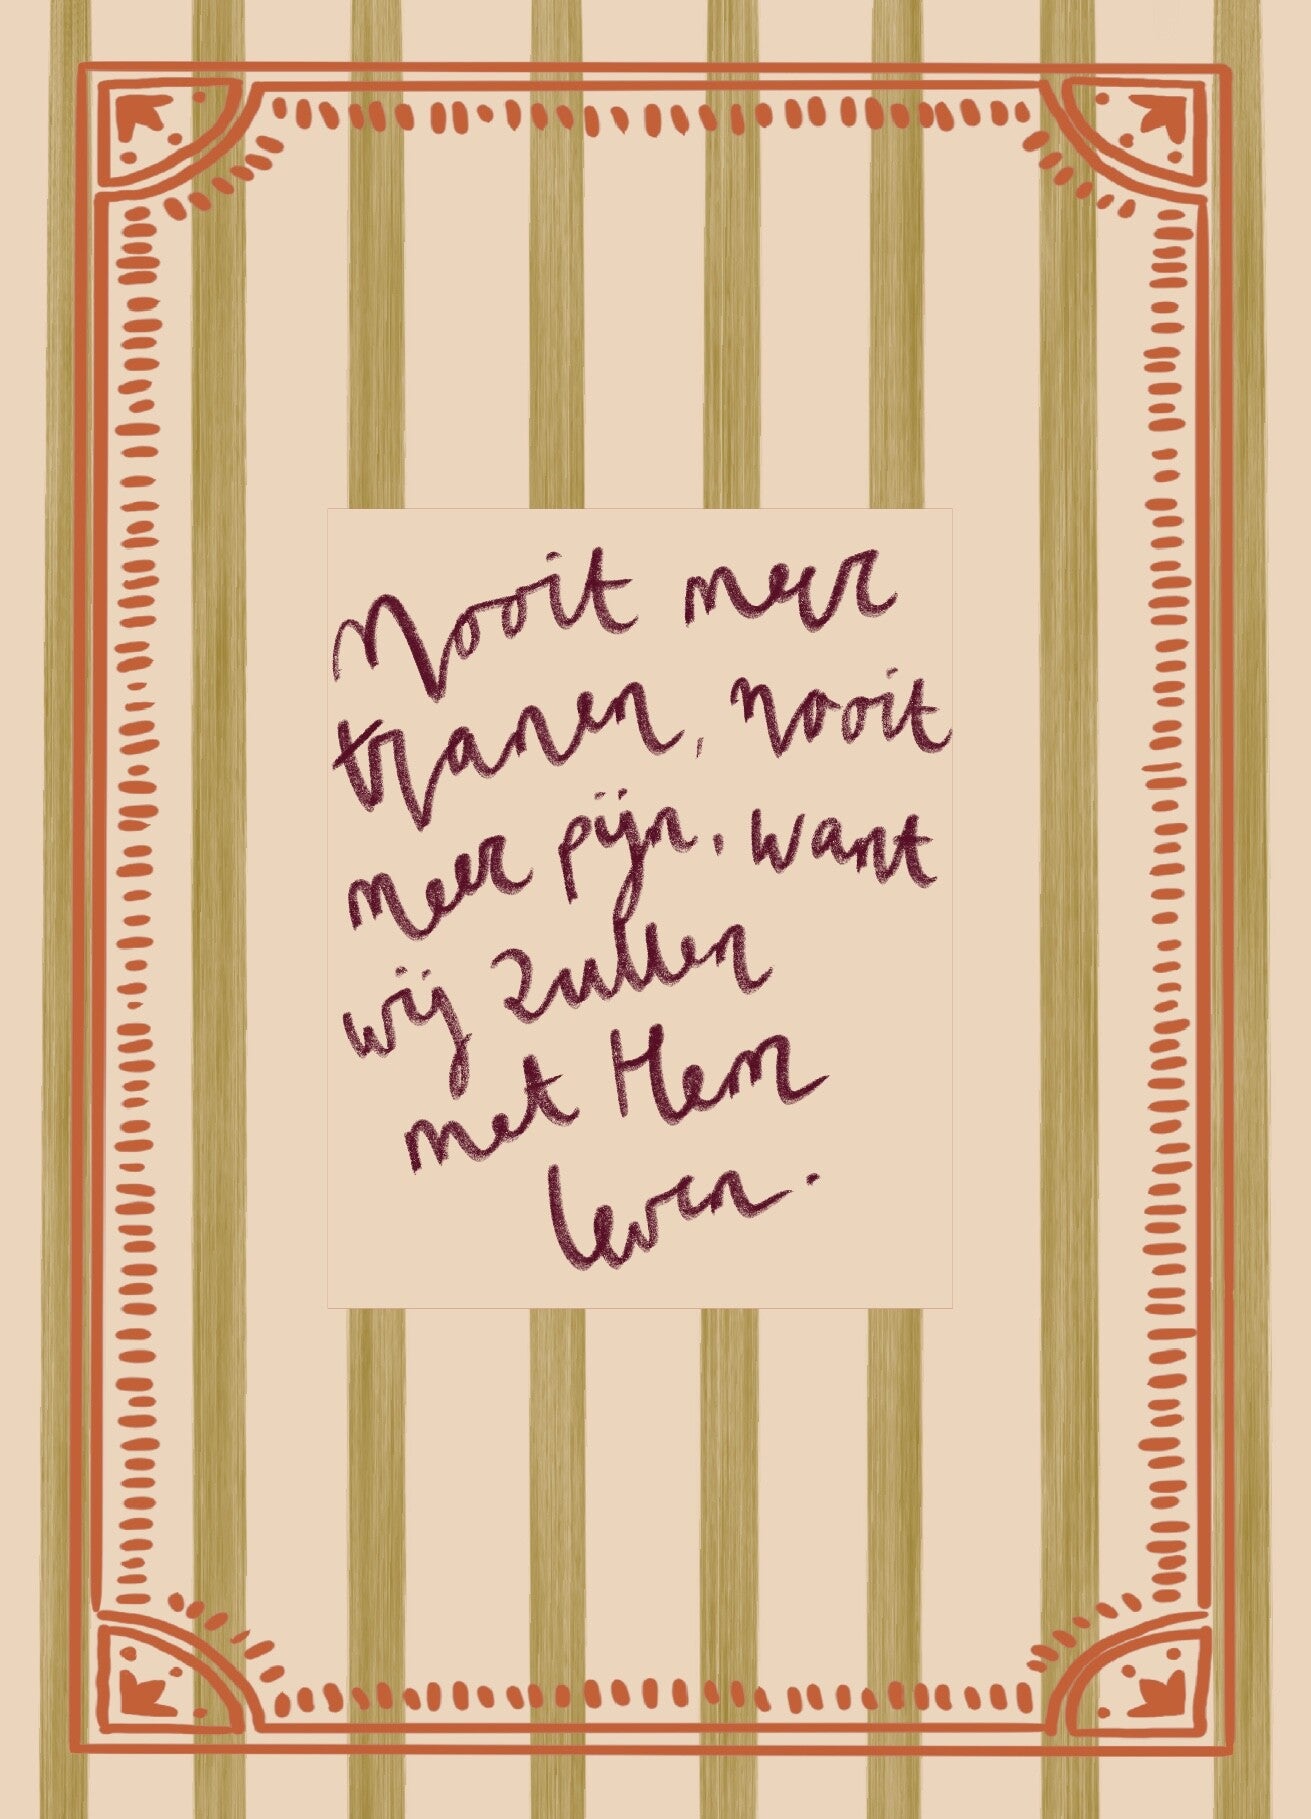 Nooit meer
tranen, nooit
meer pijn, want
wij zullen
met Hem
leven.